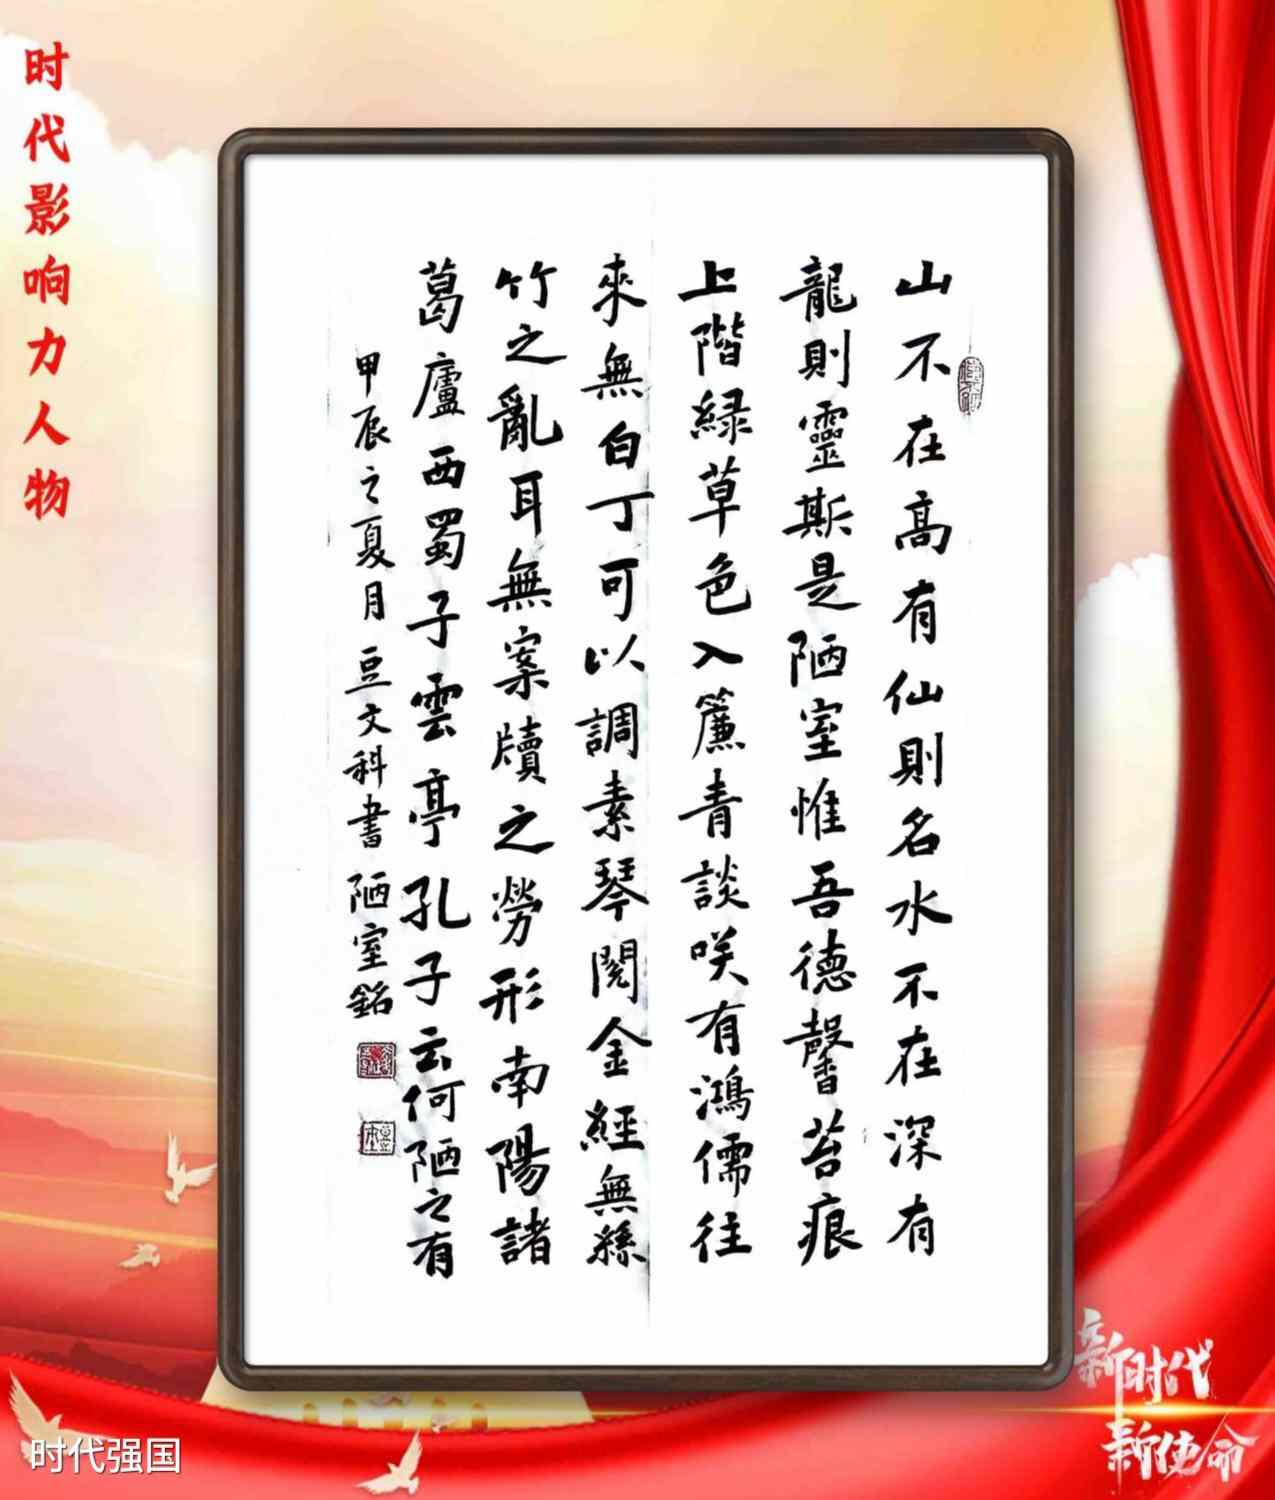 时代影响力人物
山不在高有仙则名水不在深有
龍則靈斯是陋室惟吾德馨苔痕
上階緑草色入簾青談咲有鴻儒往
來無白丁可以調素琴閱金經無絲
竹之亂耳無案牘之勞形南陽諸
葛廬西蜀子雲亭孔子云何陋之有
甲辰之夏月豆文科書陋室銘
新时代
新使命
时代强国